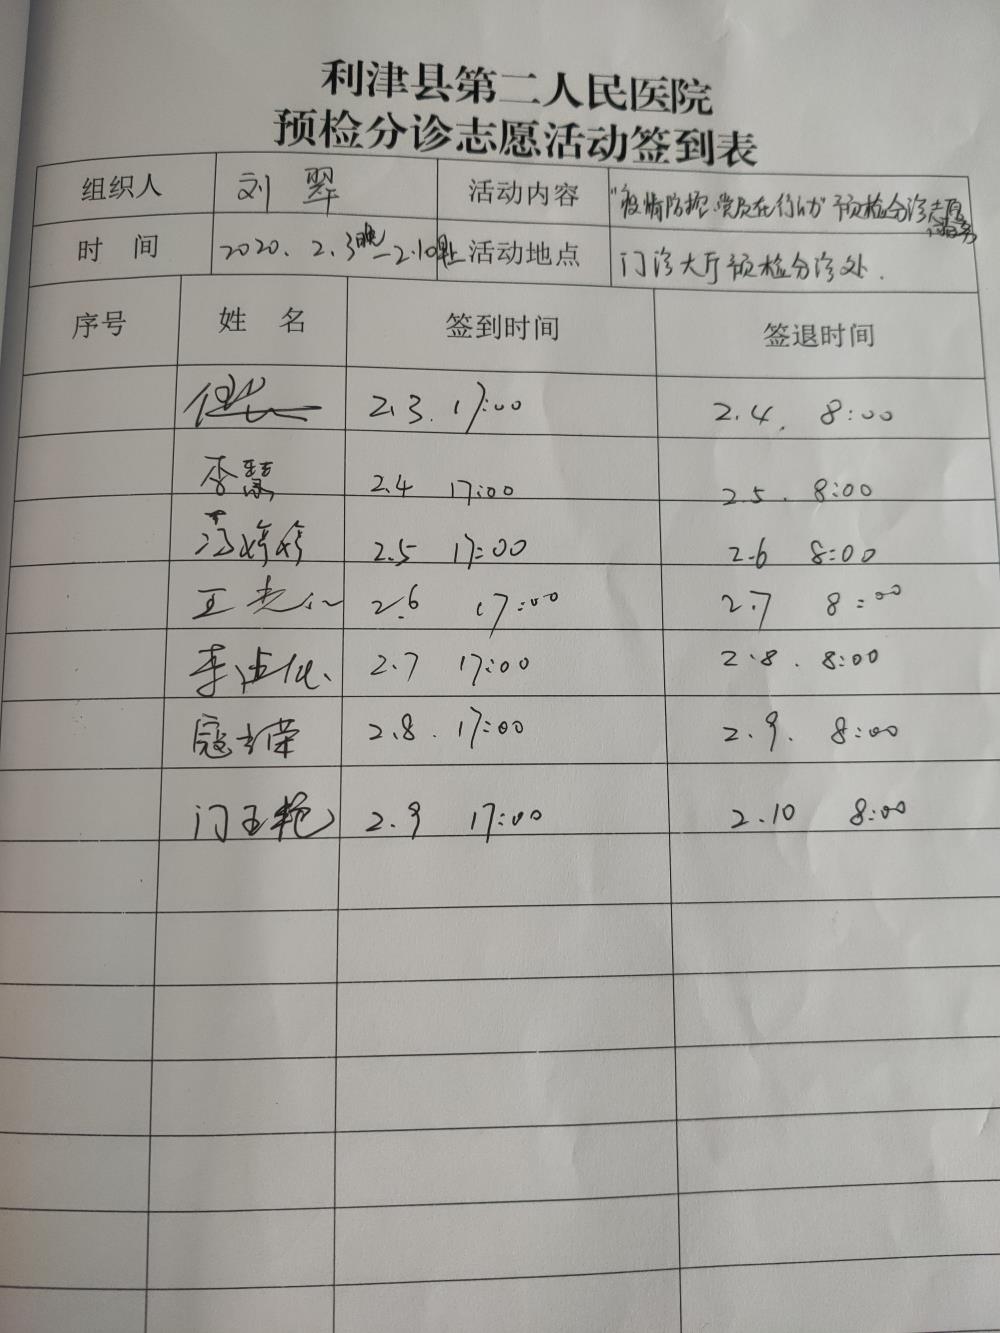 利津县第二人民医院
预检分诊志愿活动签到表
组织人 刘翠 活动内容 "疫情防控.党员在行动"预检分诊志愿服务
时间 2020.2.3晚—2.10早上 活动地点 门诊大厅预检分诊处.
序号 姓名 签到时间 签退时间
2.3. 17:00 2.4. 8:00
李慧 2.4 17:00 2.5. 8:00
冯婷婷 2.5 17:00 2.6 8:00
王 2.6 17:00 2.7 8:00
李 2.7 17:00 2.8. 8:00
寇 荣 2.8. 17:00 2.9. 8:00
门玉艳 2.9 17:00 2.10 8:00